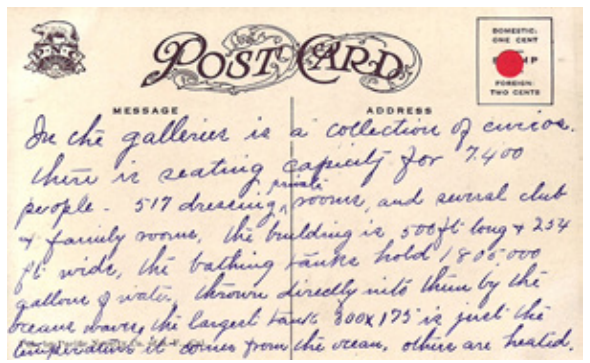 POST CARD
DOMESTIC:
ONE CENT
FOREIGN:
TWO CENTS
MESSAGE
ADDRESS
In the galleries is a collection of curios.
there is seating capacity for 7.400
private
people - 517 dressing, rooms, and several club
& family rooms, the building is 500 ft long & 254
ft wide, the bathing tanks hold 1805000
gallons of water, thrown directly into them by the
oceans waves, the largest tank 300 x 175 is just the
temperature it comes from the ocean, others are heated.